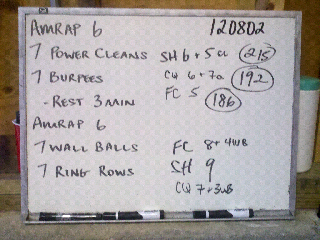 AMRAP 6 120802
7 POWER CLEANS SH 6 + 5 CL 215
7 BURPEES CQ 6 + 7a 192
- REST 3 MIN FC 5 186
AMRAP 6
7 WALL BALLS FC 8 + 4WB
7 RING ROWS SH 9
CQ 7 + 3WB